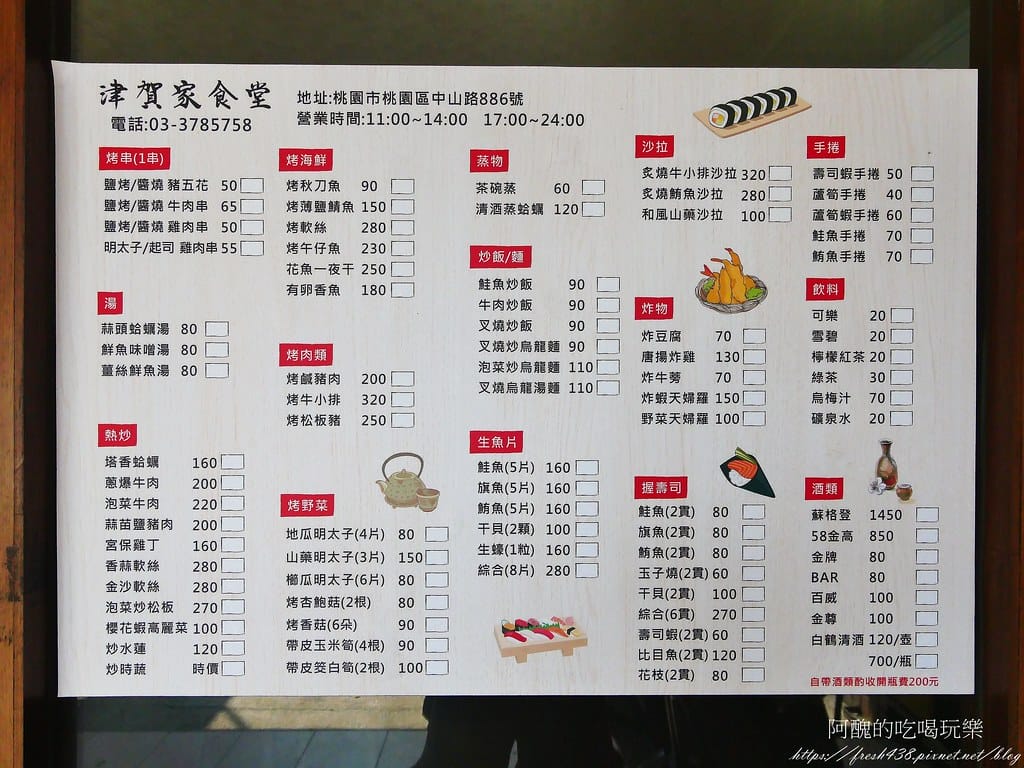 津賀家食堂
電話:03-3785758
地址:桃園市桃園區中山路886號
營業時間:11:00~14:00 17:00~24:00
烤串(1串)
鹽烤/醬燒 豬五花 50
鹽烤/醬燒 牛肉串 65
鹽烤/醬燒 雞肉串 50
明太子/起司 雞肉串 55
湯
蒜頭蛤蠣湯 80
鮮魚味噌湯 80
薑絲鮮魚湯 80
熱炒
塔香蛤蠣 160
蔥爆牛肉 200
泡菜牛肉 220
蒜苗鹽豬肉 200
宮保雞丁 160
香蒜軟絲 280
金沙軟絲 280
泡菜炒松板 270
櫻花蝦高麗菜 100
炒水蓮 120
炒時蔬 時價
烤海鮮
烤秋刀魚 90
烤薄鹽鯖魚 150
烤軟絲 280
烤午仔魚 230
花魚一夜干 250
有卵香魚 180
烤肉類
烤鹹豬肉 200
烤牛小排 320
烤松板豬 250
烤野菜
地瓜明太子(4片) 80
山藥明太子(3片) 150
櫛瓜明太子(6片) 80
烤杏鮑菇(2根) 80
烤香菇(6朵) 90
帶皮玉米筍(4根) 90
帶皮筊白筍(2根) 100
蒸物
茶碗蒸 60
清酒蒸蛤蠣 120
炒飯/麵
鮭魚炒飯 90
牛肉炒飯 90
叉燒炒飯 90
叉燒炒烏龍麵 90
泡菜炒烏龍麵 110
叉燒烏龍湯麵 110
生魚片
鮭魚(5片) 160
旗魚(5片) 160
鮪魚(5片) 160
干貝(2顆) 100
生蠔(1粒) 160
綜合(8片) 280
沙拉
炙燒牛小排沙拉 320
炙燒鮪魚沙拉 280
和風山藥沙拉 100
炸物
炸豆腐 70
唐揚炸雞 130
炸牛蒡 70
炸蝦天婦羅 150
野菜天婦羅 100
握壽司
鮭魚(2貫) 80
旗魚(2貫) 80
鮪魚(2貫) 80
玉子燒(2貫) 60
干貝(2貫) 100
綜合(6貫) 270
壽司蝦(2貫) 60
比目魚(2貫) 120
花枝(2貫) 80
手捲
壽司蝦手捲 50
蘆筍手捲 40
蘆筍蝦手捲 60
鮭魚手捲 70
鮪魚手捲 70
飲料
可樂 20
雪碧 20
檸檬紅茶 20
綠茶 30
烏梅汁 70
礦泉水 20
酒類
蘇格登 1450
58金高 850
金牌 80
BAR 80
百威 100
金尊 100
白鶴清酒 120/壺
700/瓶
自帶酒類酌收開瓶費200元
阿醜的吃喝玩樂
https://fresh438.pixnet.net/blog